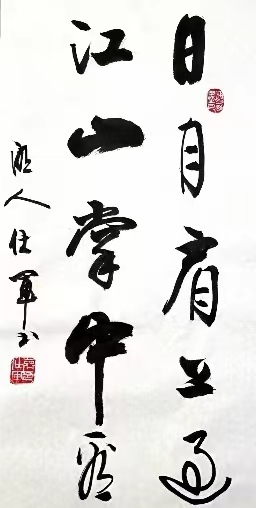 日月肩上过
江山掌中看
人仕军书